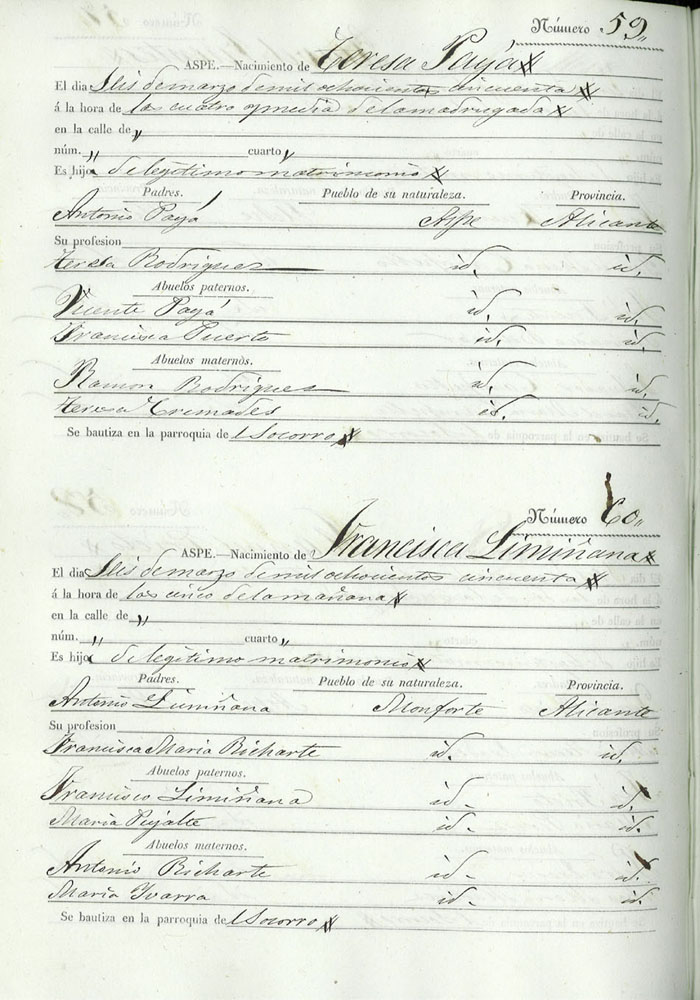 Número 59,,
ASPE.—Nacimiento de Teresa Payá
El dia Seis de marzo de mil ochocientos cincuenta
á la hora de las cuatro y media de la madrugada
en la calle de ,,
núm. ,, cuarto ,,
Es hija de legitimo matrimonio
Padres. Pueblo de su naturaleza. Provincia.
Antonio Payá Aspe Alicante
Su profesion
Teresa Rodriguez id. id.
Abuelos paternos.
Vicente Payá id. id.
Francisca Puerto id. id.
Abuelos maternos.
Ramon Rodriguez id. id.
Teresa Cremades id. id.
Se bautiza en la parroquia del Socorro
Número 60,,
ASPE.—Nacimiento de Francisca Limiñana
El dia Seis de marzo de mil ochocientos cincuenta
á la hora de las cinco de la mañana
en la calle de ,,
núm. ,, cuarto ,,
Es hija de legitimo matrimonio
Padres. Pueblo de su naturaleza. Provincia.
Antonio Limiñana Monforte Alicante
Su profesion
Francisca Maria Richarte id. id.
Abuelos paternos.
Francisco Limiñana id. id.
Maria Pujalte id. id.
Abuelos maternos.
Antonio Richarte id. id.
Maria Yvarra id. id.
Se bautiza en la parroquia del Socorro